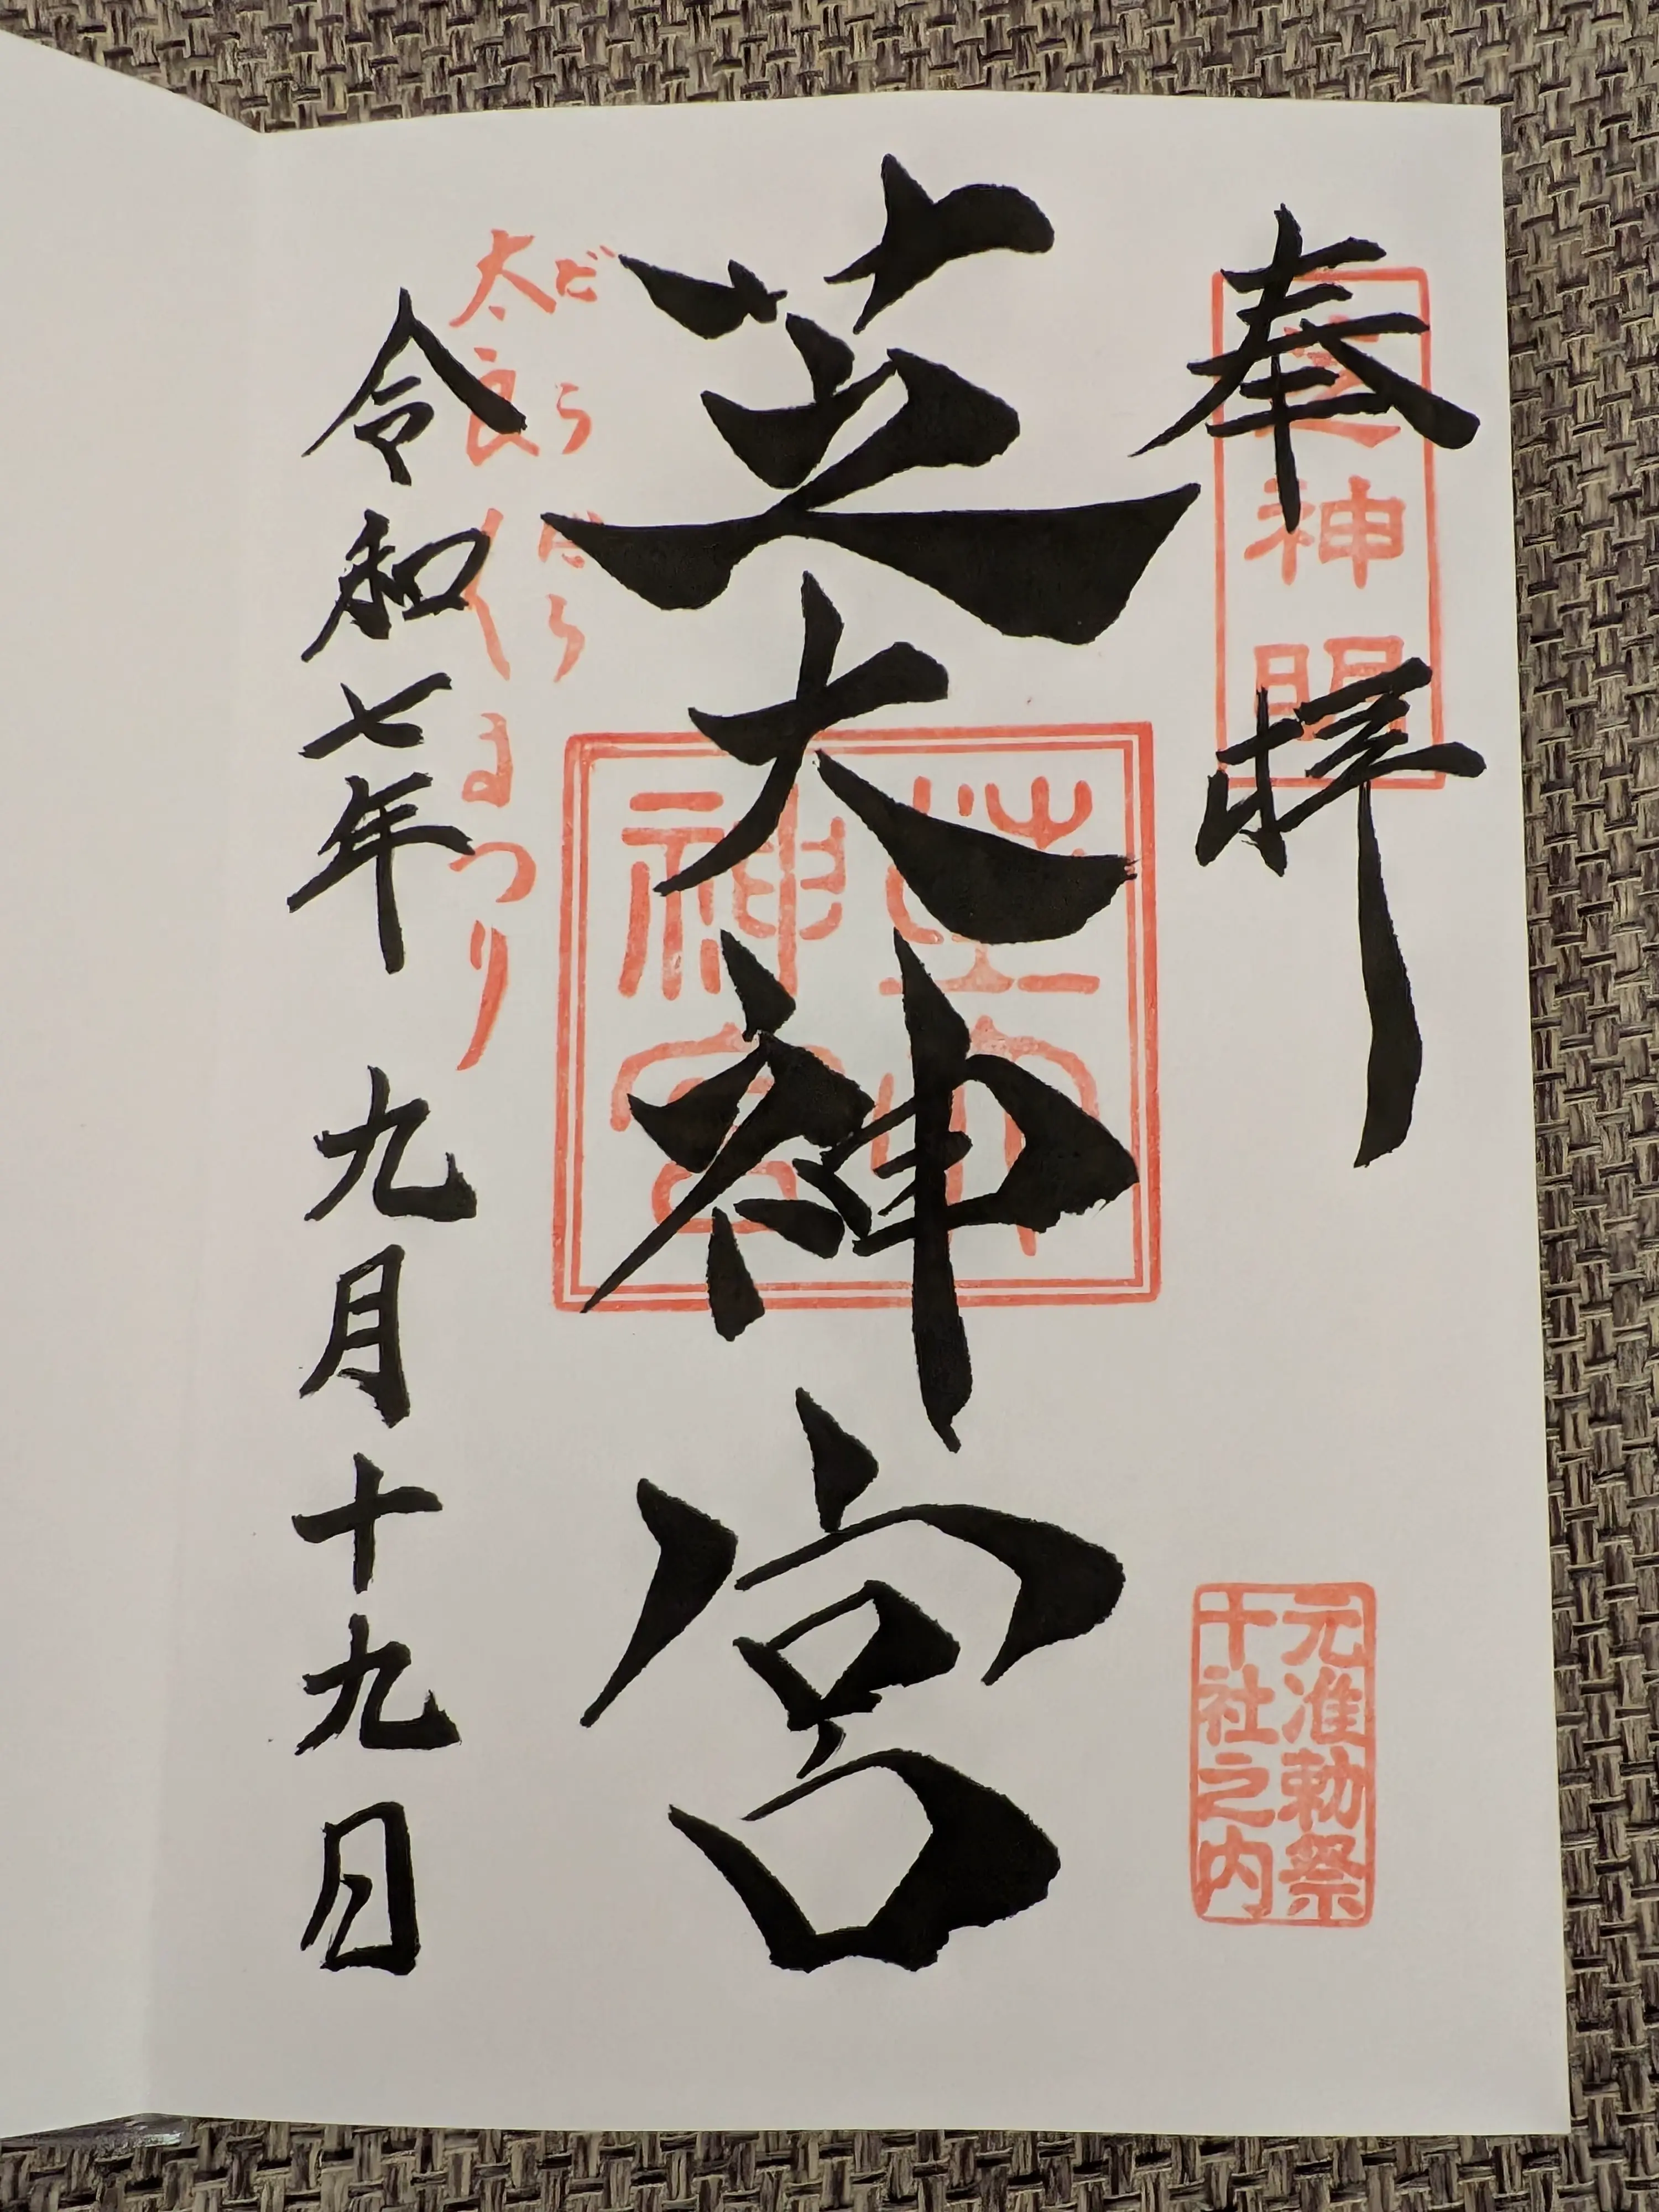 奉拝
芝神明
元准勅祭
十社之内
芝大神宮
芝大
神宮
だらだら
太良〱まつり
令和七年 九月十九日